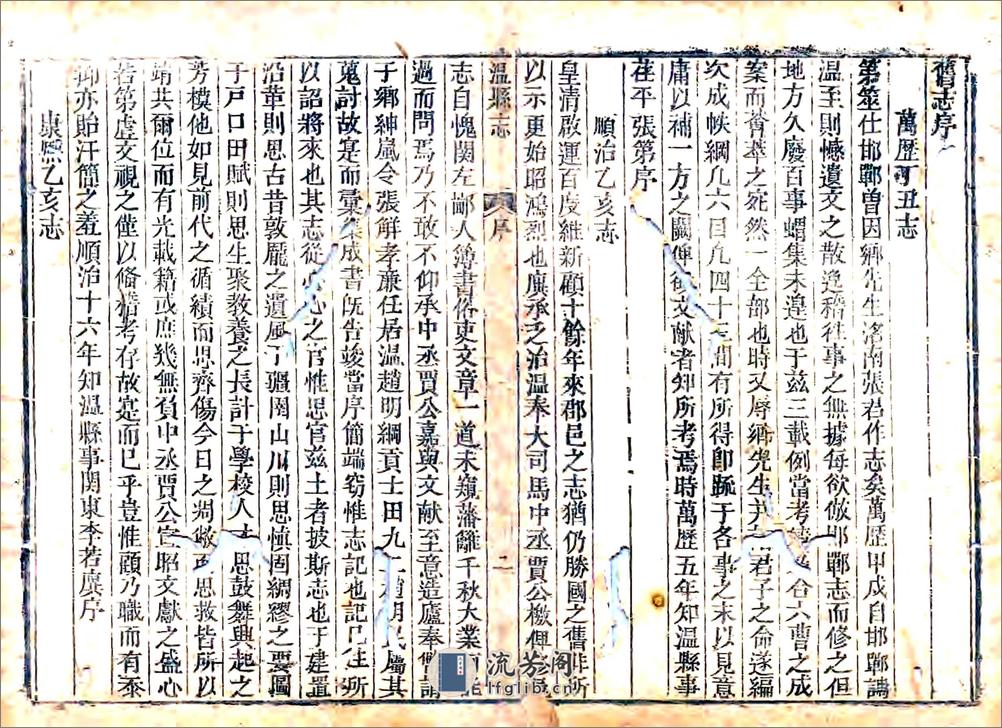 舊志序
萬歷丁丑志
第筮仕邯鄲曽因鄉先生洺南張君作志矣萬歷甲戍自邯鄲調
温至則憾遺文之散逸稽徃事之無據每欲倣邯鄲志而修之但
地方久廢百事蝟集未遑也于兹三載例當考績 合六曹之成
案而薈萃之宛然一全部也時又辱鄉先生并二三君子之命遂編
次成帙綱凡六目凡四十 間有所得卽䟽于各事之末以見意
庸以補一方之闕俾後文献者知所考焉時萬歷五年知温縣事
茌平張第序
順治乙亥志
皇清啟運百度維新顧十餘年來郡邑之志猶仍勝國之舊非所
以示更始昭鴻烈也廙承乏治温奉大司馬中丞賈公檄俾
温縣志
序
二
志自愧関左鄙人簿書俗吏文章一道未窺藩籬千秋大業
過而問焉乃不敢不仰承中丞賈公嘉與文献至意造廬奉 請
于鄉紳嵐令張解孝亷任居温趙明綱貢士田九 趙明 屬其
蒐討故寔而彚集成書旣告竣當序簡端窃惟志記也記已徃所
以詔將來也其志從心心之官惟思官兹土者披斯志也于建置
沿革則思古昔敦龎之遺風于彊圉山川則思慎固綢繆之要圖
于戸口田賦則思生聚教養之長計于學校人才思鼓舞興起之
芳模他如見前代之循績而思齊傷今日之凋敝 思救皆所以
靖共爾位而有光載籍或庶幾無負中丞賈公宣昭文獻之盛心
若第虚文視之僅以偹稽考存故寔而已乎豈惟頋乃職而有忝
抑亦貽汗簡之羞順治十六年知温縣事関東李若廙序
康熙乙亥志
流芳阁
lfglib.cn